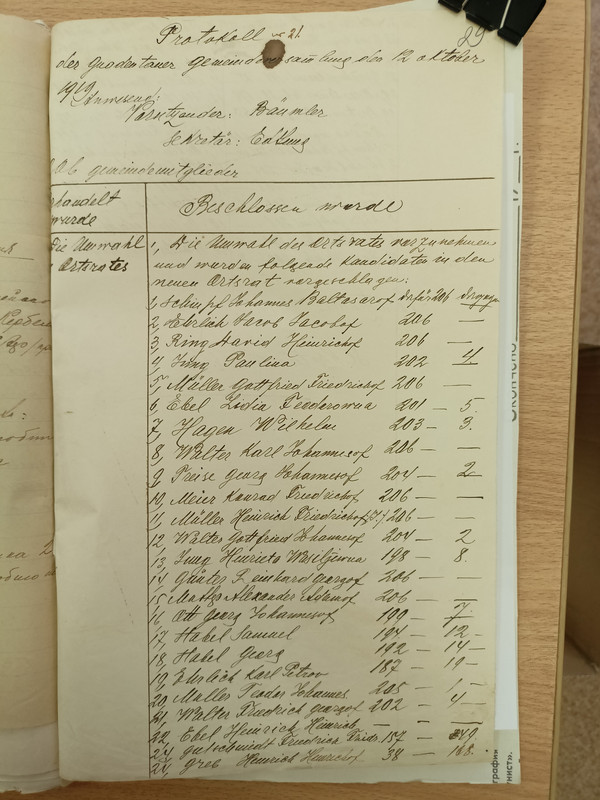 Protokoll № 21. 29
der gnadentauer gemeindeversammlung des 12 oktober
1919. Anwesend:
Vorsitzender: Bäumler
Sekretär:
gemeindemitglieder
handelt
wurde
Beschlossen wurde
Die Umwahl
Ortsrates
1, Die Umwahl des Ortsrates vorzunehmen
und wurden folgende Kandidaten in den
neuen Ortsrat vorgeschlagen:
1, Schimpf Johannes Baltasarof dafür 206 dagegen
2, Ehrlich Jacob Jacobof 206 —
3, Ring David Heinrichof 206 —
4, Jung Paulina 202 — 4
5, Müller Gottfried Friedrichof 206 —
6, Ebel Lidia Teodorowna 201 — 5.
7, Hagen Wilhelm 203 — 3.
8, Walter Karl Johannesof 206 —
9, Preise Georg Johannesof 204 — 2
10, Meier Konrad Friedrichof 206 — —
11, Müller Heinrich Friedrichof 206 — —
12, Walter Gottfried Johannesof 204 — 2
13, Jung Henrieta Wasiljewna 198 — 8.
14 Reinhard Georgof 206 — —
15 Alexander Adamof 206 — —
16 Ott Georg Johannesof 199 — 7
17, Habel Samuel 194 — 12 —
18, Habel Georg 192 — 14 —
19, Ehrlich Karl Petrov 187 — 19 —
20, Müller Teodor Johannes 205 — 1 —
21, Walter Friedrich Georgof 202 — 4
22, Ebel Heinrich Heinrich — — —
Gutschmidt Friedrich Fridr. 157 — 49.
24, Greb Heinrich 38 — 168.